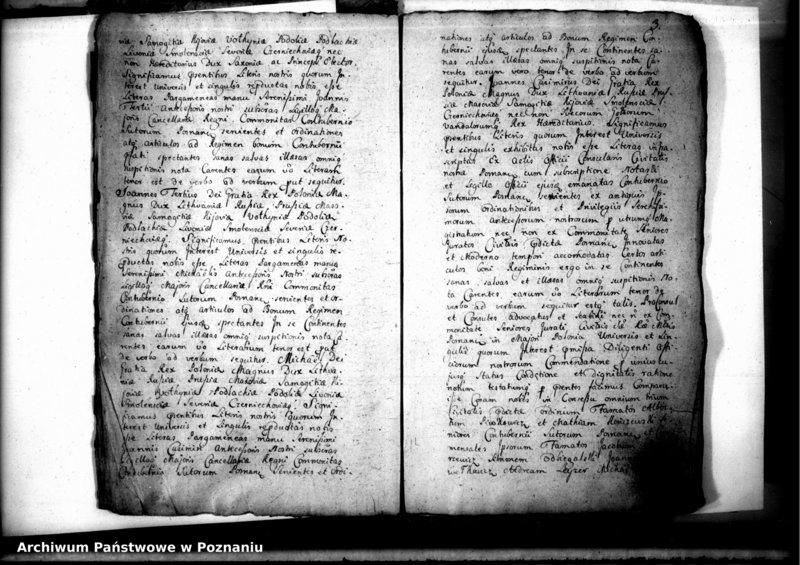 nia Samogitiæ Kijoviæ Volhyniæ Podoliæ Podlachiæ
Livoniæ Smolenciæ Severiæ Czerniechoviæq nec
non Hæreditarius Dux Saxoniæ ac Princeps Elector.
Significamus præsentibus Literis nostris quorum In-
terest Universis et singulis repductas nobis esse
Literas Pargameneas manu Serenissimi Joannis
Tertii Antecessoris nostri subscras sigilloq Ma-
joris Cancellariæ Regni Commonitas Contubernio
Sutorum Posnaniæ servientes et ordinationes
atq articulos ad Regimen bonum Contubernii
spectantes sanas salvas illæsas omniq
suspitionis nota Carentes earum vo Literarum
tenor est de verbo ad verbum put sequitur.
Joannes Tertius Dei Gratia Rex Poloniæ Ma-
gnus Dux Lithuaniæ Russiæ Prussiæ Maso-
viæ Samogitiæ Kijoviæ Volhyniæ Podoliæ
Podlachiæ Livoniæ Smolenciæ Severiæ Czer-
niechoviæq. Significamus præsentibus Literis No-
stris quorum Interest Universis et singulis re-
pductas nobis esse Literas Pargameneas manu
Serenissimi Michaelis Antecessoris Nostri subscras
sigilloq Majoris Cancellariæ Rgni Commonitas
Contubernio Sutorum Posnaniæ servientes et or-
dinationes atq articulos ad Bonum Regimen
Contubernii Ejusq spectantes In se Continentes
sanas salvas illæsas omniq suspitionis nota Ca-
rentes earum vo Literarum tenor est put
de verbo ad verbum sequitur. Michael Dei
Gratia Rex Poloniæ Magnus Dux Lithua-
niæ Russiæ Prussiæ Masoviæ Samogitiæ Ki-
joviæ Volhyniæ Podlachiæ Podoliæ Livoniæ
Smolenciæ Severiæ Czerniechoviæq. Signi-
ficamus præsentibus Literis nostris quorum In-
terest Universis et Singulis repductas nobis
esse Literas Pargameneas manu Serenissimi
Joannis Casimiri Antecessoris Nostri subscras
sigilloq Majoris Cancellariæ Regni Commonitas
Contubernio Sutorum Posnaniæ Servientes et Ordi-
3.
nationes atq articulos ad Bonum Regimen Con-
tubernii ejusq spectantes In se Continentes sa-
nas salvas illæsas omniq suspitionis nota Ca-
rentes earum vero tenor de verbo ad verbum
sequitur. Joannes Casimirus Dei Gratia Rex
Poloniæ Magnus Dux Lithuaniæ Russiæ Prus-
siæ Masoviæ Samogitiæ Kijoviæ Smolenciæ
Czerniechoviæq nec non Svecorum Gottorum
Vandalorumq Rex Hæreditarius. Significamus
præsentibus Literis quorum Interest Universis
et singulis exhibitas nobis esse Literas infra-
scriptas Ex Actis Officii Consularis Civitatis
nostræ Posnaniæ cum subscriptione Notarii
et Sigillo Officii ejusq emanatas Contubernio
Sutorum Posnaniæ servientes ex antiquis Ip-
sorum ordinationibus et Privilegiis Serenissi-
morum Antecessorum nostrorum p utrumq Ma-
gistratum nec non ex Commonitate Seniores
Juratos Civilis prædictæ Posnaniæ Innovatas
et Moderno tempori accomodatas Certos arti-
culos boni Regiminis ergo in se Continentes
sanas salvas et illæsas omniq suspitionis No-
ta Carentes earum vo Literarum tenor de
verbo ad verbum sequitur estq talis. Proconsul
et Consules Advocatus et Scabini nec non ex Com-
monitate Seniores Jurati Civilis
Posnaniæ in Majori Polonia Universis et sin-
gulis quorum Interest præmissa Diligenti offi-
ciorum nostrorum Commendatione p univscu-
jusq Status Conditione et dignitatis ratione
notum testatumq p præsentes facimus Compara-
isse Coram nobis in Consessu omnium trium
Civitatis prædictæ ordinum Famatos Alber-
tum et Mathiam
niores Contubernii Sutorum Posnaniæ et
mensales Ipsorum Famatos Jacobum
Simonem Joann
Andream Michae
Archiwum Państwowe w Poznaniu